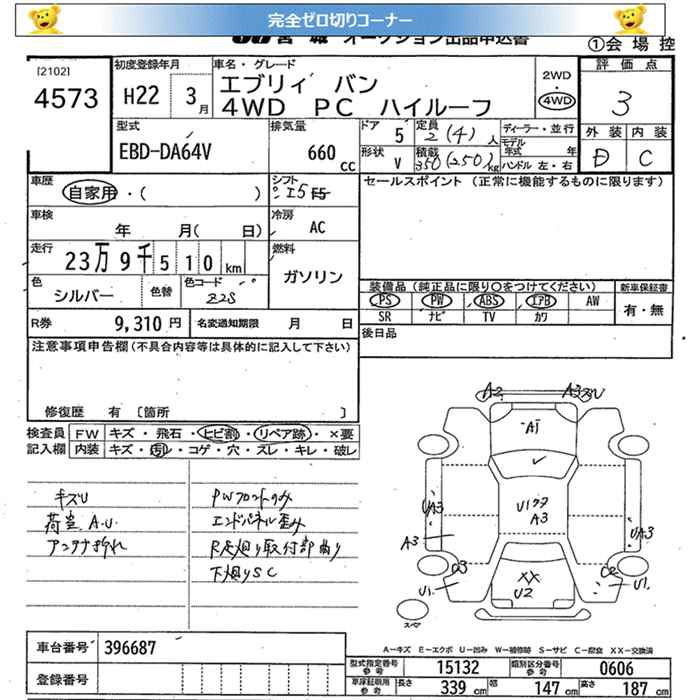 完全ゼロ切りコーナー
オークション出品申込書
①会場控
[2102]
4573
初度登録年月
H22 3月
車名・グレード
エブリィ バン
4WD PC ハイルーフ
2WD
・
4WD
評価点
3
外装 内装
D C
型式
EBD-DA64V
排気量
660 cc
ドア 5
形状 V
定員 2(4)人
積載 350(250)kg
ディーラー・並行
モデル年式 年
ハンドル 左・右
車歴
自家用・( )
シフト
I5
セールスポイント (正常に機能するものに限ります)
車検
年 月( 日)
冷房
AC
走行
23万9千510km
燃料
ガソリン
色
シルバー
色替
色コード
Z2S
装備品(純正品に限り〇をつけてください)
新車保証書
PS PW ABS エアB AW
有・無
SR ナビ TV カワ
R券 9,310円
名変通知期限 月 日
後日品
注意事項申告欄(不具合内容等は具体的に記入して下さい)
修復歴 有 [箇所 ]
検査員 FW キズ・飛石・ヒビ割・リペア跡・×要
記入欄 内装 キズ・汚レ・コゲ・穴・スレ・キレ・破レ
キズU
荷室A.U
アンテナ折れ
PWフロントのみ
エンドパネル歪み
R足廻り取付部曲り
下廻りSC
A2 A3ズU
A1
✓
UA3
U1クク
A3
UA3
A3
C3
C2
U1
XX
U2
U1
スペア
A-キズ E-エクボ U-凹み W-補修跡 S-サビ C-腐食 XX-交換済
車台番号 396687
登録番号
型式指定番号 15132
類別区分番号 0606
車庫証明用参考 長さ 339cm 幅 147cm 高さ 187cm